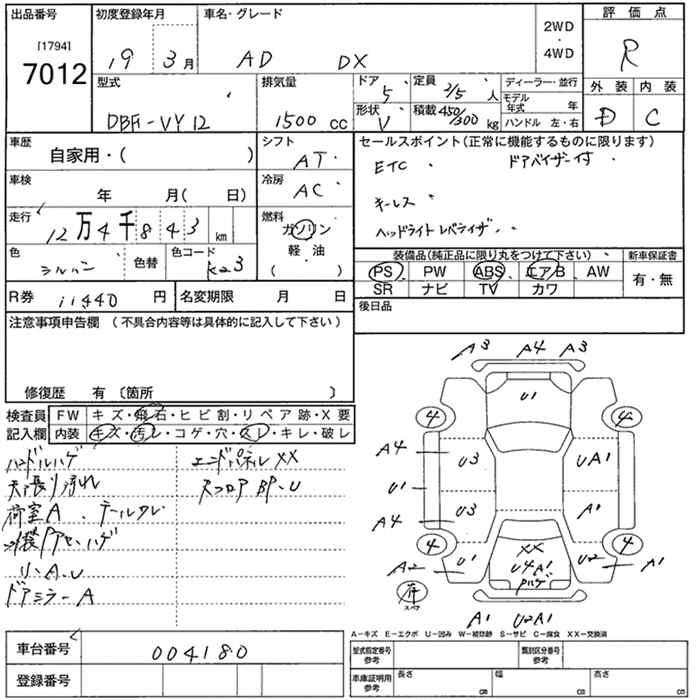 出品番号
[1794]
7012
初度登録年月
19 3月
車名・グレード
AD DX
2WD
・
4WD
評価点
R
外装 内装
D C
型式
DBF-VY12
排気量
1500 cc
ドア
5
定員 2/5 人
形状
V
積載 450/300 kg
ディーラー・並行
モデル年式 年
ハンドル 左・右
車歴
自家用・( )
シフト
AT
セールスポイント(正常に機能するものに限ります)
ETC ドアバイザー付
キーレス
ヘッドライトレベライザー
車検
年 月( 日)
冷房
AC
走行
12万4千843 km
燃料
ガソリン
軽・油
( )
色
シルバー
色替
色コード
K23
装備品(純正品に限り丸をつけて下さい)
PS PW ABS エアB AW
SR ナビ TV カワ
新車保証書
有・無
R券 11440 円
名変期限 月 日
後日品
注意事項申告欄(不具合内容等は具体的に記入して下さい)
修復歴 有〔箇所 〕
検査員
記入欄
FW キズ・飛石・ヒビ割・リペア跡・X要
内装 キズ・汚レ・コゲ・穴・スレ・キレ・破レ
ハンドルハゲ
天張り汚れ
荷室A、テールワレ
リ、A、U
ドアミラーA
エンドパネルXX
スフロアBP、U
A3 A4 A3
U1
4 4
A4 U3 UA1
U1
A4 U3 A1
4 4
A2 U1 XX U2 A1
U4 A1
ハゲ
スペア
A1 U2A1
A-キズ E-エクボ U-凹み W-補修跡 S-サビ C-腐食 XX-交換済
車台番号
004180
登録番号
型式指定番号
参考
類別区分番号
参考
車庫証明用
参考
長さ cm
幅 cm
高さ cm